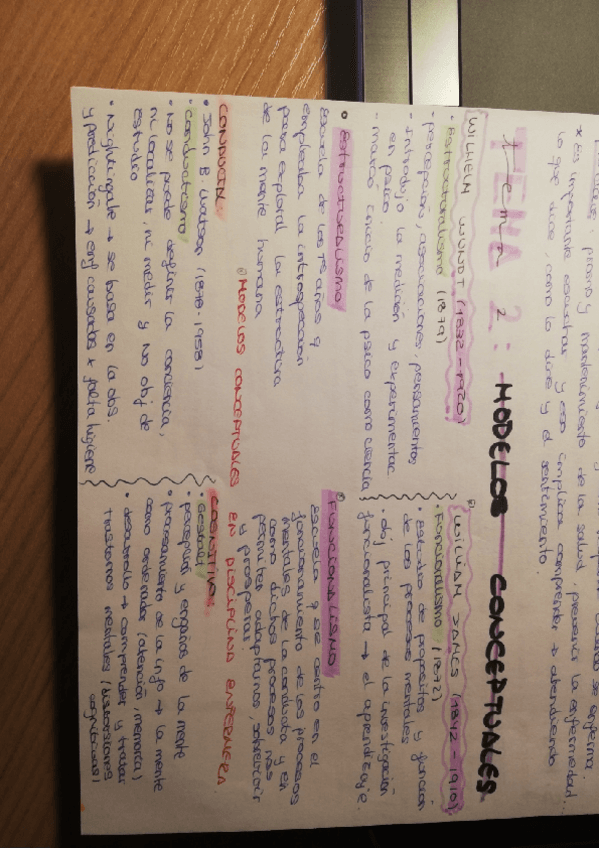 promo y mantenimiento de la salud, prevenir la enfermedad...
* Es importante escuchar y eso implica comprender + atendiendo
lo que dice, como lo dice y el sentimiento.
tema 2: MODELOS CONCEPTUALES
WILHELM WUNDT (1832-1920)
• Estructuralismo (1879)
- percepción, asociaciones, pensamientos
- Introdujo la medición y experimentar
en psico.
- marcó inicio de la psico como ciencia
WILLIAM JAMES (1842-1910)
• Funcionalismo (1872)
• Estudio de propositos y función
de los procesos mentales
• obj principal de la investigación
funcionalista → el aprendizaje.
ESTRUCTURALISMO
Escuela de los 1ºs años q
empleaba la introspección
para explorar la estructura
de la mente humana
FUNCIONALISMO
Escuela q se centró en el
funcionamiento de los procesos
mentales de la conducta y en
como dichos procesos nos
permiten adaptarnos, sobrevivir
y prosperar.
MODELOS CONCEPTUALES EN DISCIPLINA ENFERMERA
CONDUCTAL
• John B Watson (1878-1958)
• Conductismo
• No se puede definir la conciencia,
ni localizar, ni medir y No obj de
estudio
• Nightingale → se basa en la obs.
y predicción → enf causadas x falta higiene
COGNITIVOS
• Gestalt
• percepción y engaños de la mente
• procesamiento de la info → la mente
como ordenador (atención, memoria)
• desarrollo → comprender y tratar
trastornos mentales (distorsiones
cognitivas)